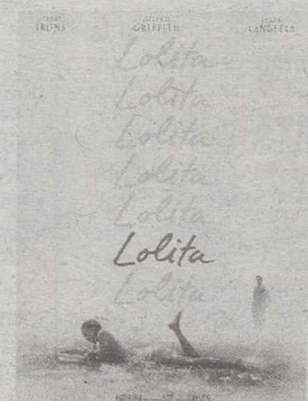 IRONS GRIFFITH LANGELLA
Lolita
Lolita
Lolita
Lolita
Lolita
Lolita
Lolita